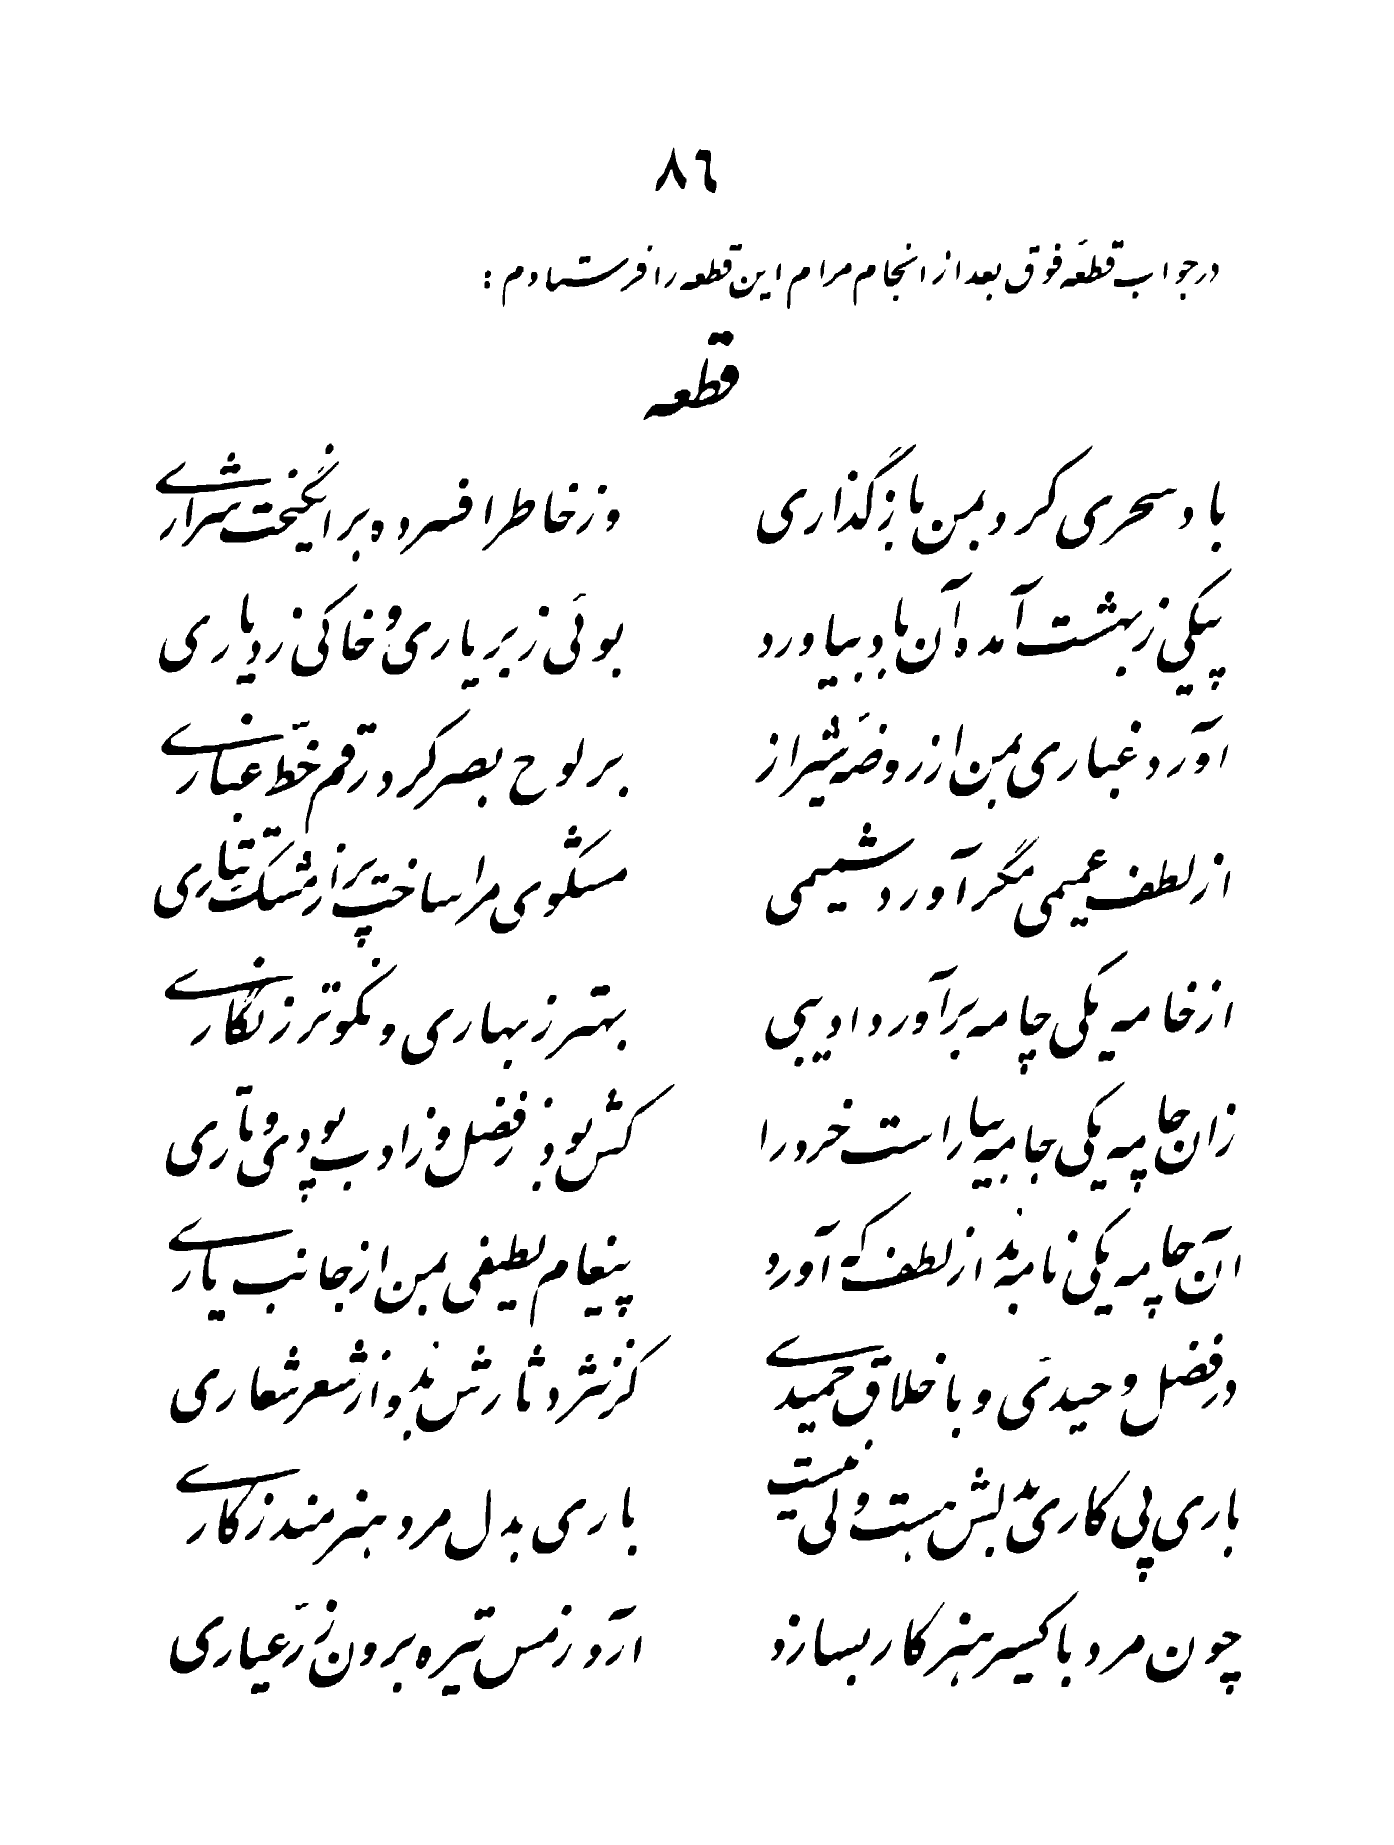 ٨٦
در جواب قطعهٔ فوق بعد از انجام مرام این قطعه را فرستادم :
قطعه
باد سحری کرد بمن باز گذاری	وز خاطر افسرده برانگیخت شراری
پیکی ز بهشت آمده آن باد بیاورد	بوئی ز بر یاری و خاکی ز دیاری
آورد غباری بمن از روضهٔ شیراز	بر لوح بصر کرد رقم خطّ غباری
از لطف عمیمی مگر آورد شمیمی	مشگوی مرا ساخت پر از مشک تتاری
از خامه یکی چامه برآورد ادیبی	بهتر ز بهاری و نکوتر ز نگاری
زان چامه یکی جامه بیاراست خرد را	کش بود ز فضل و ز ادب پودی و تاری
آن چامه یکی نامه بُد از لطف که آورد	پیغام لطیفی بمن از جانب یاری
در فضل وحیدی و باخلاق حمیدی	کز نثر دثارش بُد و از شعر شعاری
باری پی کاری بُد لبش بست ولی نیست	باری بدل مرد هنرمند ز کاری
چون مرد باکسیر هنر کار بسازد	آرد ز مس تیره برون زرّ عیاری